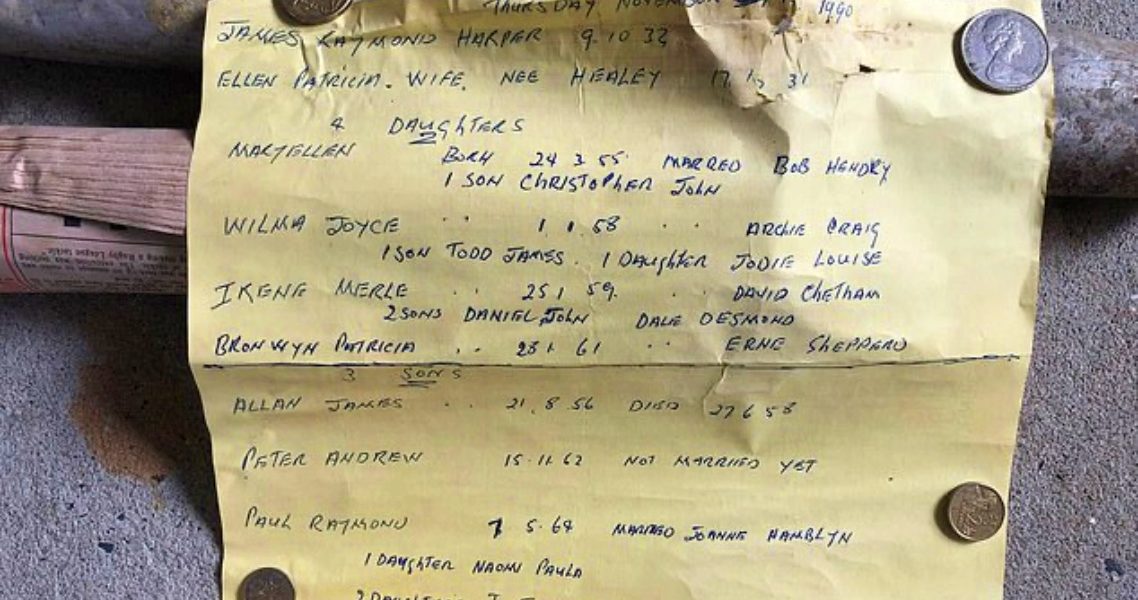 THURSDAY NOVEMBER 1990
JAMES RAYMOND HARPER 9.10.32
ELLEN PATRICIA. WIFE. NEE HEALEY 17 31
4 DAUGHTERS
MARYELLEN BORN 24 3 55 MARRED BOB HENDRY
1 SON CHRISTOPHER JOHN
WILMA JOYCE " 1 1 58 " ARCHIE CRAIG
1 SON TODD JAMES. 1 DAUGHTER JODIE LOUISE
IRENE MERLE " 25 1 59. " DAVID CHETHAM
2 SONS DANIEL JOHN DALE DESMOND
BRONWYN PATRICIA " 23 1 61 " ERNE SHEPPERD
3 SONS
ALLAN JAMES " 21.8.56 DIED 27 6 58
PETER ANDREW 15.11.62 NOT MARRIED YET
PAUL RAYMOND 5.64 MARRIED JOANNE HAMBLYN
1 DAUGHTER NAOMI PAULA